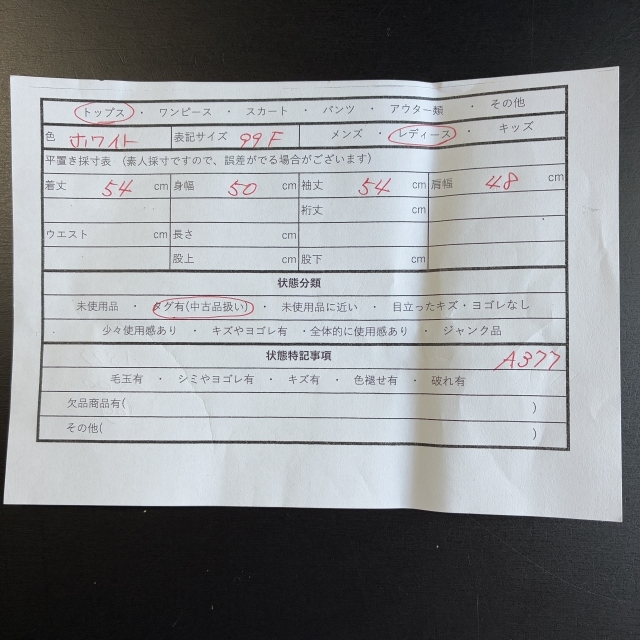 トップス ・ ワンピース ・ スカート ・ パンツ ・ アウター類 ・ その他
色 ホワイト 表記サイズ 99F メンズ ・ レディース ・ キッズ
平置き採寸表 (素人採寸ですので、誤差がでる場合がございます)
着丈 54 cm 身幅 50 cm 袖丈 54 cm 肩幅 48 cm
裄丈 cm
ウエスト cm 長さ cm cm
股上 cm 股下 cm
状態分類
未使用品 ・ タグ有(中古品扱い) ・ 未使用品に近い ・ 目立ったキズ・ヨゴレなし
少々使用感あり ・ キズやヨゴレ有 ・全体的に使用感あり ・ ジャンク品
状態特記事項 A377
毛玉有 ・ シミやヨゴレ有 ・ キズ有 ・ 色褪せ有 ・ 破れ有
欠品商品有( )
その他( )